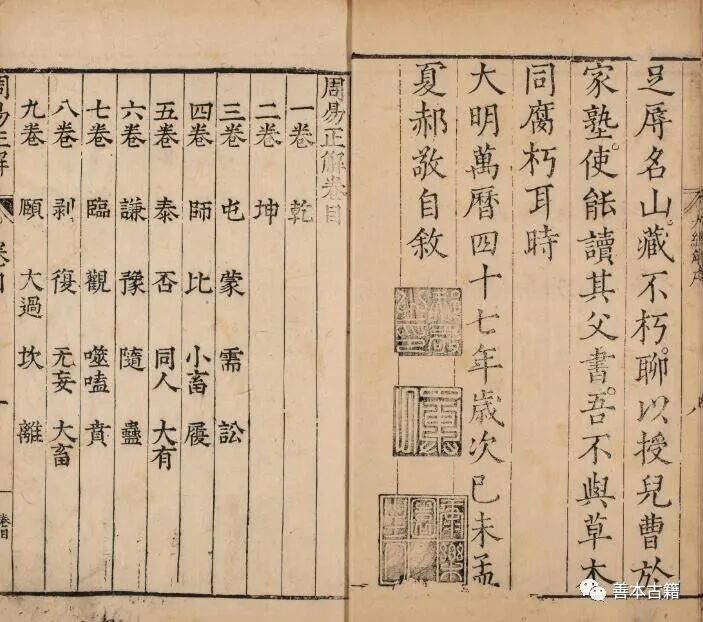 足辱名山藏不朽聊以授兒曹於
家塾使能讀其父書吾不與草木
同腐朽耳時
大明萬曆四十七年歲次己未孟
夏郝敬自敘
周易正解卷目
一卷 乾
二卷 坤
三卷 屯 蒙 需 訟
四卷 師 比 小畜 履
五卷 泰 否 同人 大有
六卷 謙 豫 隨 蠱
七卷 臨 觀 噬嗑 賁
八卷 剥 復 无妄 大畜
九卷 頤 大過 坎 離
周易正解
卷目
善本古籍